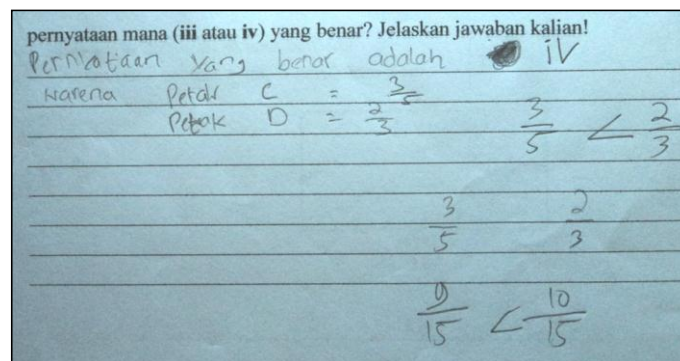 pernyataan mana (iii atau iv) yang benar? Jelaskan jawaban kalian!
Pernyataan yang benar adalah iv
Karena Petak C = 3/5
Petak D = 2/3
3/5 < 2/3
3/5 2/3
9/15 < 10/15